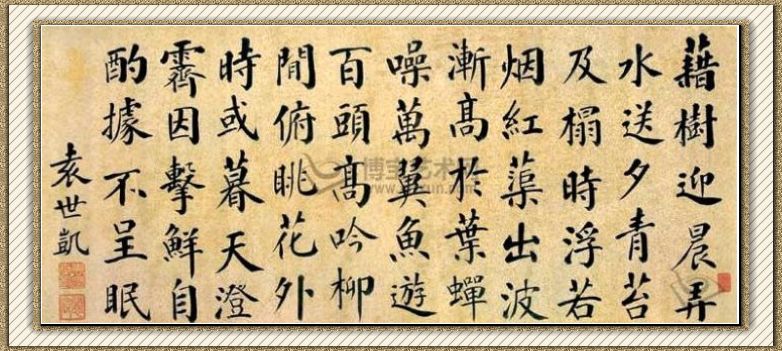 藉樹迎晨弄
水送夕青苔
及榻時浮若
烟紅蕖出波
漸髙於葉蟬
噪萬冀魚遊
百頭髙吟柳
間俯眺花外
時或暮天澄
霽因擊鮮自
酌據不呈眠
袁世凱
博宝艺术网